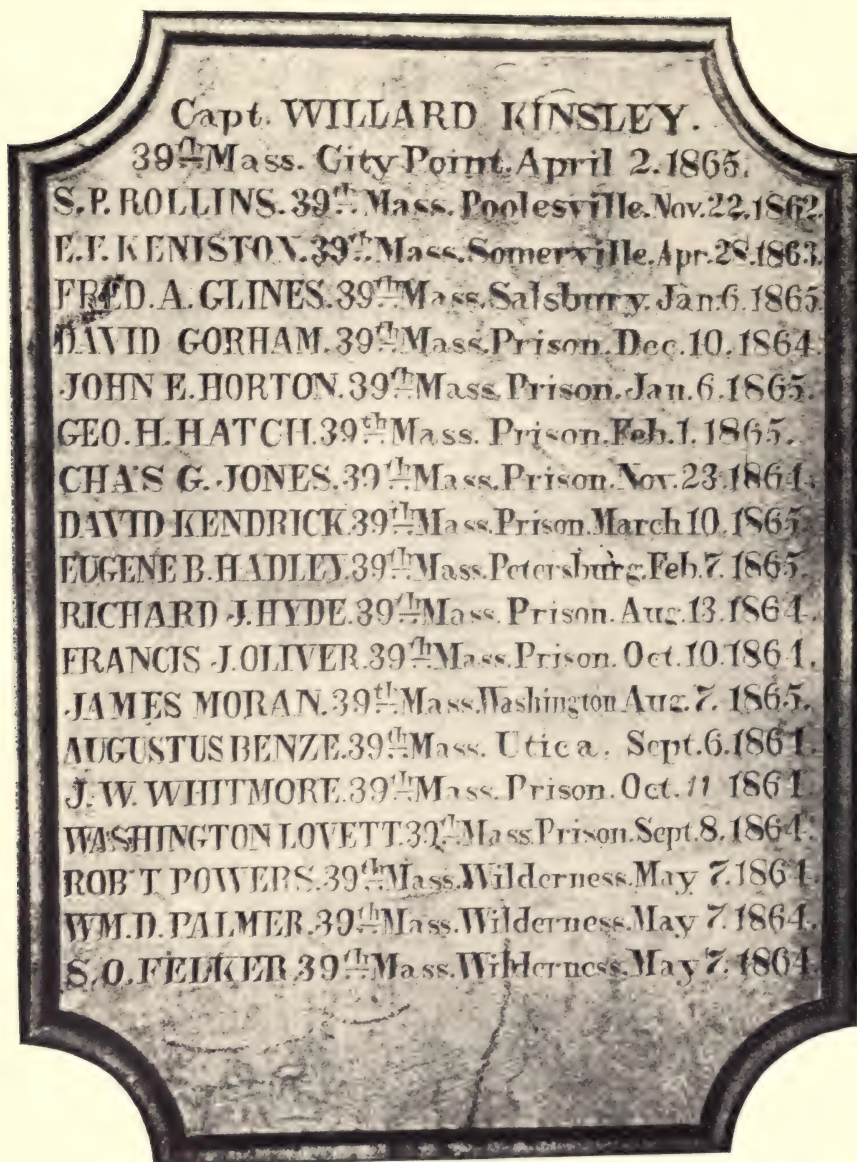 Capt. WILLARD KINSLEY.
39th Mass. City Point. April 2. 1865.
S. P. ROLLINS. 39th Mass. Poolesville. Nov. 22. 1862.
E. F. KENISTON. 39th Mass. Somerville. Apr. 28. 1863.
FRED. A. GLINES. 39th Mass. Salsbury. Jan. 6. 1865
DAVID GORHAM. 39th Mass. Prison. Dec. 10. 1864.
JOHN E. HORTON. 39th Mass. Prison. Jan. 6. 1865.
GEO. H. HATCH. 39th Mass. Prison. Feb. 1. 1865.
CHA'S G. JONES. 39th Mass. Prison. Nov. 23. 1864.
DAVID KENDRICK. 39th Mass. Prison. March 10. 1865.
EUGENE B. HADLEY. 39th Mass. Petersburg. Feb. 7. 1865.
RICHARD J. HYDE. 39th Mass. Prison. Aug. 13. 1864.
FRANCIS J. OLIVER. 39th Mass. Prison. Oct. 10. 1864.
JAMES MORAN. 39th Mass. Washington Aug. 7. 1865.
AUGUSTUS BENZE. 39th Mass. Utica. Sept. 6. 1864.
J. W. WHITMORE. 39th Mass. Prison. Oct. 11 1864.
WASHINGTON LOVETT. 39th Mass. Prison. Sept. 8. 1864.
ROB'T POWERS. 39th Mass. Wilderness. May 7. 1864.
WM. D. PALMER. 39th Mass. Wilderness. May 7. 1864.
S. O. FELKER. 39th Mass. Wilderness. May 7. 1864.